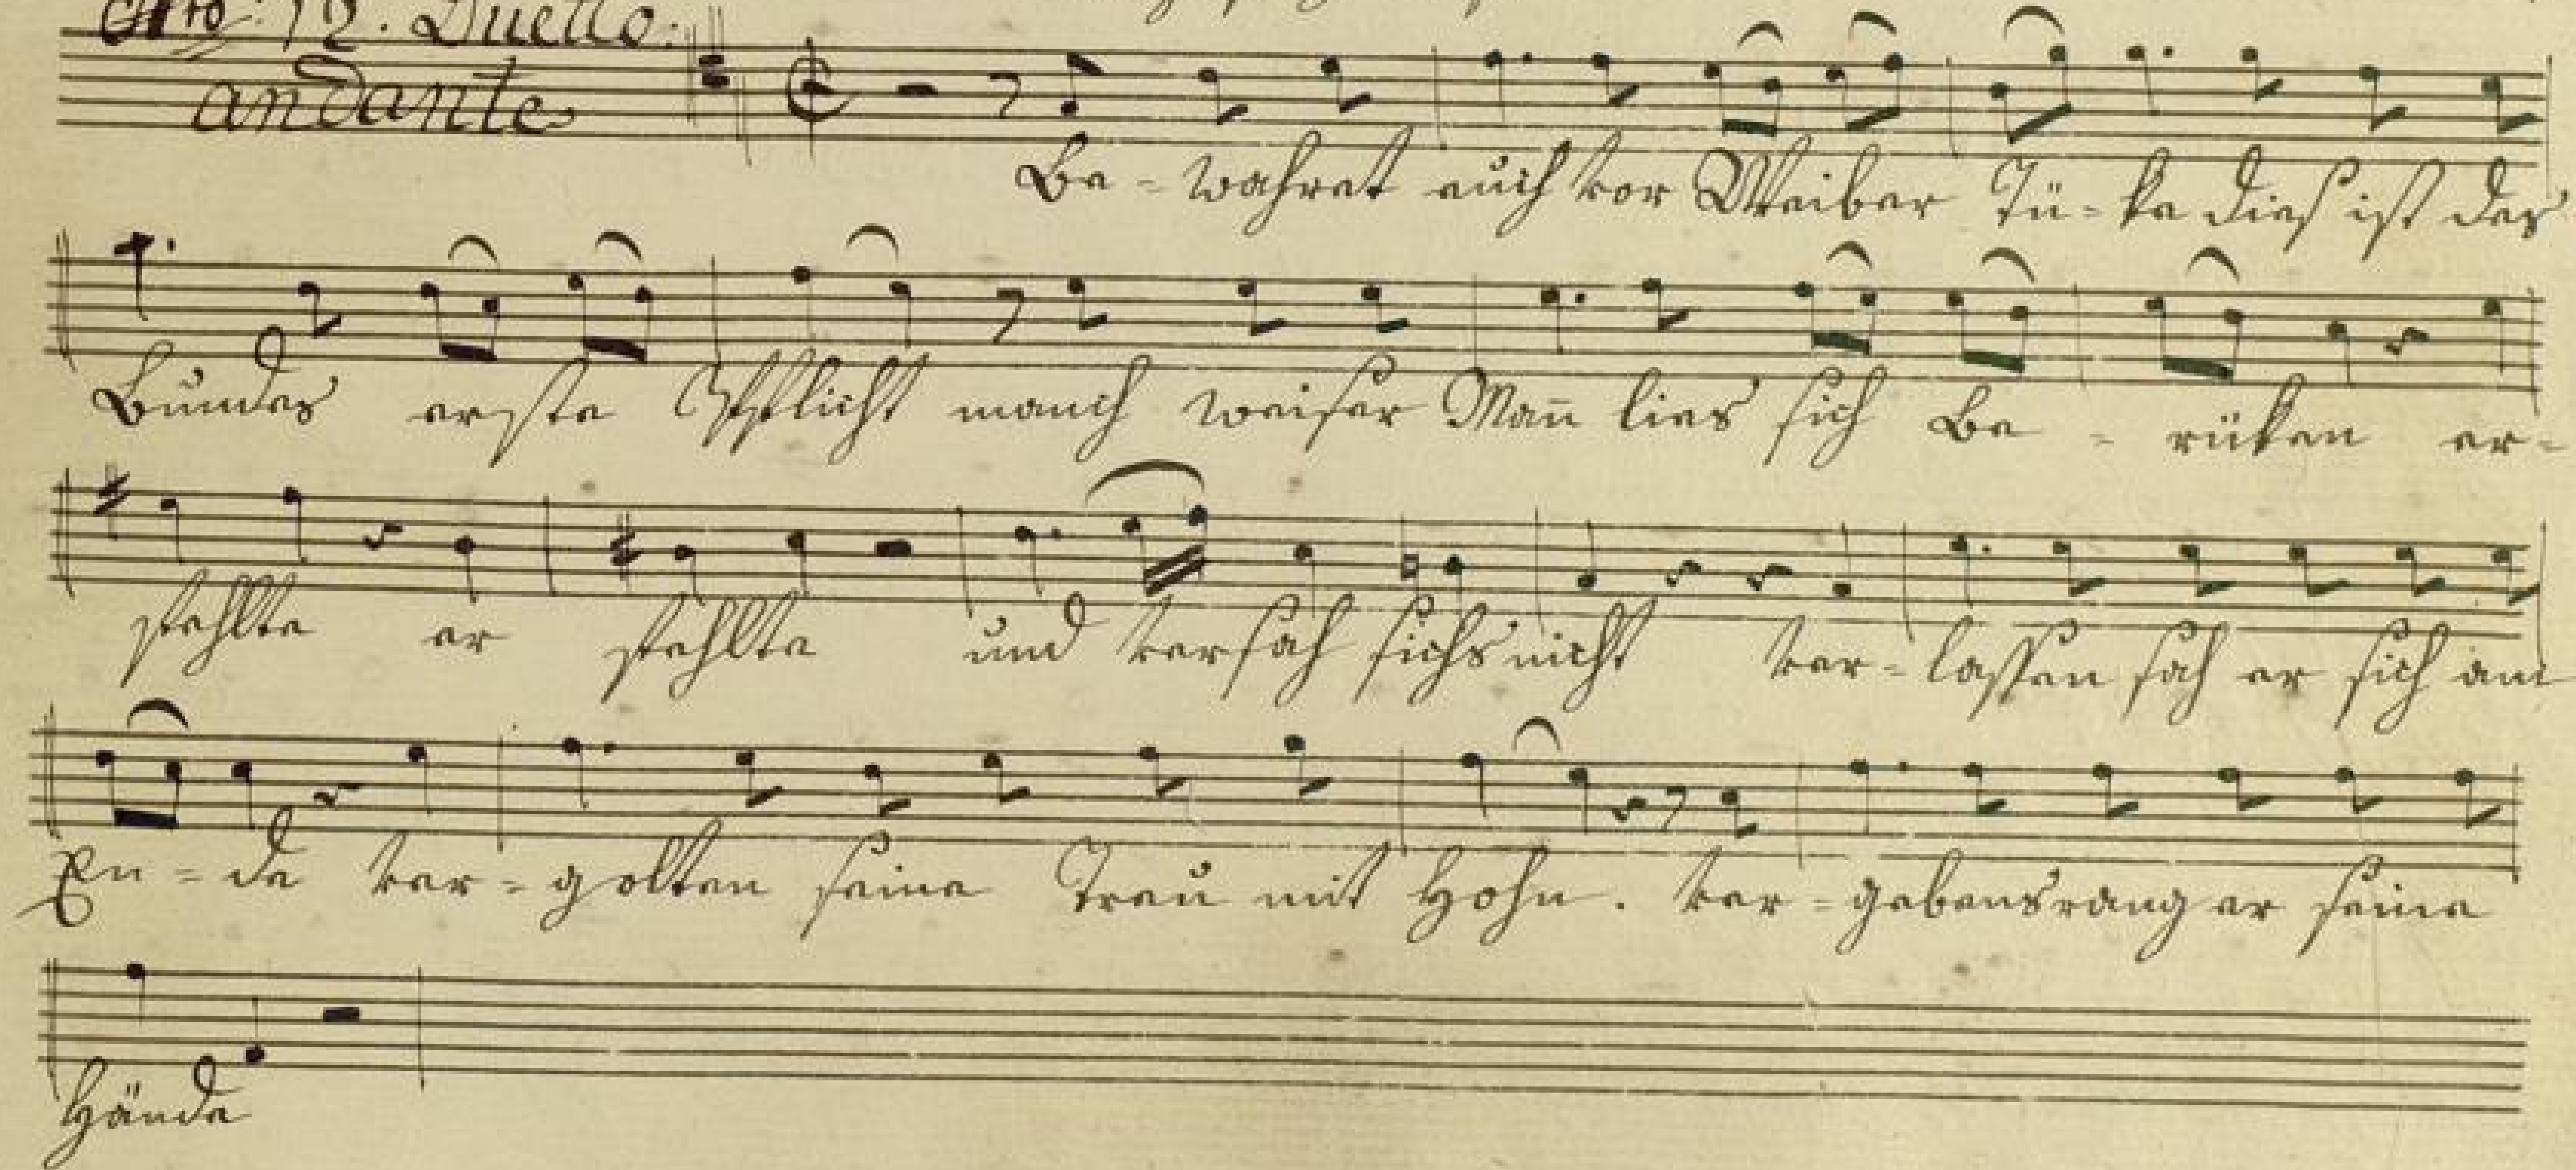 Nro: 12. Duetto.
andante
Be - wahret euch vor Weiber Tü - ke dies ist des
Bundes erste Pflicht manch weiser Man̄ lies sich Be - rüken er -
fehlte er fehlte und versah sichs nicht ver - lassen sah er sich am
En - de ver - golten seine Treu mit Hohn. ver - gebens rang er seine
Hände